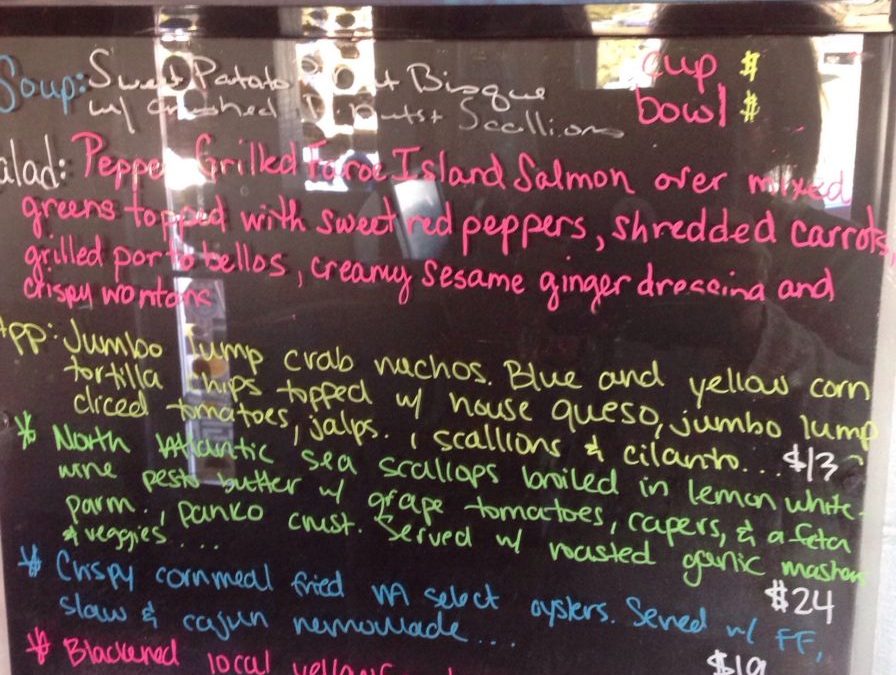 Soup: Sweet Potato Bisque cup $
w/ crushed P. nuts + Scallions bowl $
alad: Pepper Grilled Faroe Island Salmon over mixed
greens topped with sweet red peppers, shredded carrots,
grilled portobellos, creamy sesame ginger dressing and
crispy wontons
App: Jumbo lump crab nachos. Blue and yellow corn
tortilla chips topped w/ house queso, jumbo lump
diced tomatoes, jalps., scallions & cilantro... $13
* North Atlantic sea scallops broiled in lemon white-
wine pesto butter w/ grape tomatoes, capers, & a feta
parm., panko crust. Served w/ roasted garlic mashers
& veggies.... $24
* Crispy cornmeal fried VA select oysters. Served w/ FF,
slaw & cajun remoulade... $19
* Blackened local